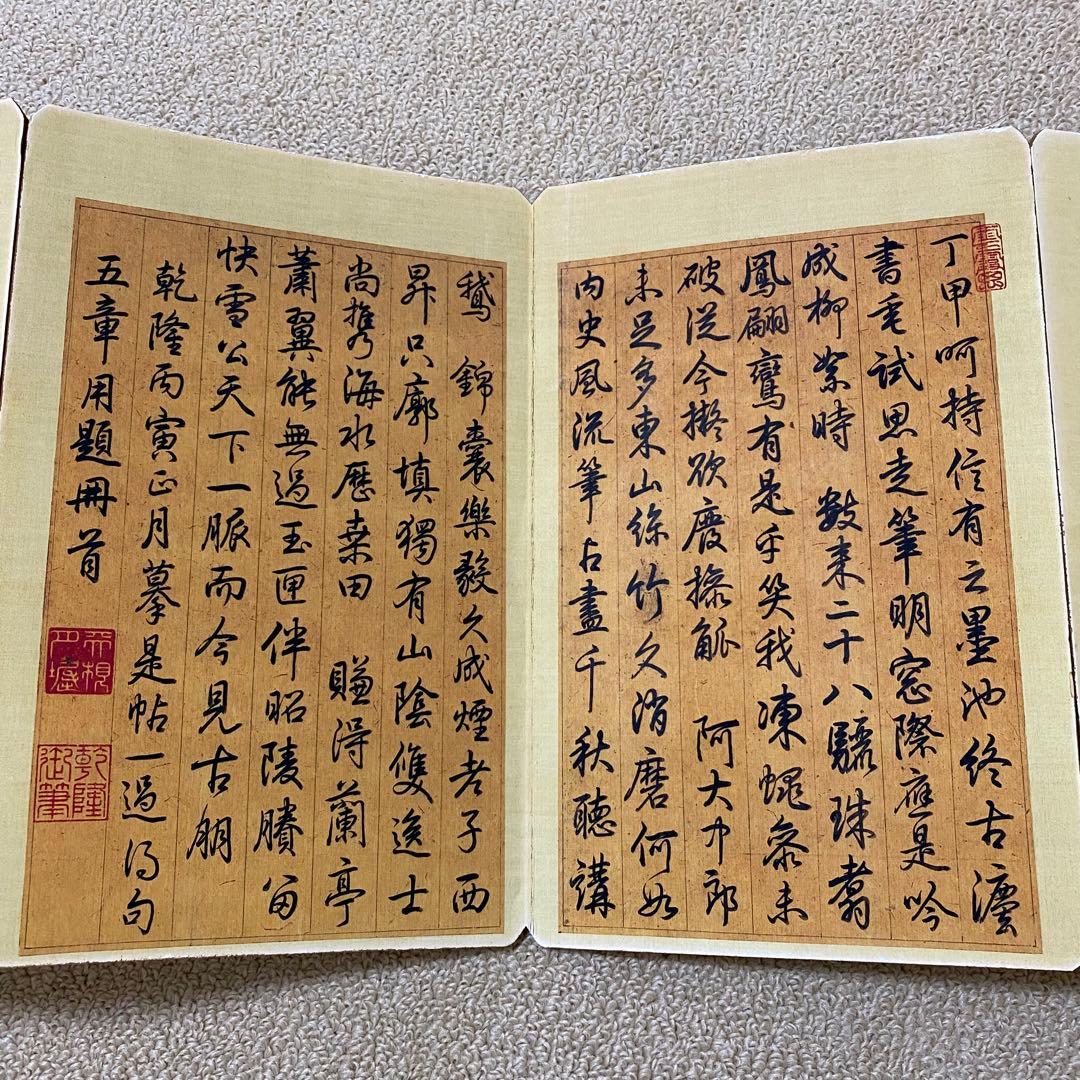 丁甲呵持信有之墨池終古灋
書垂試思走筆明窓際應是吟
成柳絮時 數來二十八驪珠翥
鳳翩鸞有是乎笑我凍蠅參未
破從今擬欲廢操觚 阿大中郎
未足多東山絲竹久消磨何如
内史風流筆占盡千秋聽講
鵝 錦囊樂毅久成煙老子西
昇只廓填獨有山陰雙逸士
尚攜海水歷桑田 賺得蘭亭
蕭翼能無過玉匣伴昭陵賸留
快雪公天下一脈而今見古朋
乾隆丙寅正月摹是帖一過得句
五章用題冊首
乾隆御筆